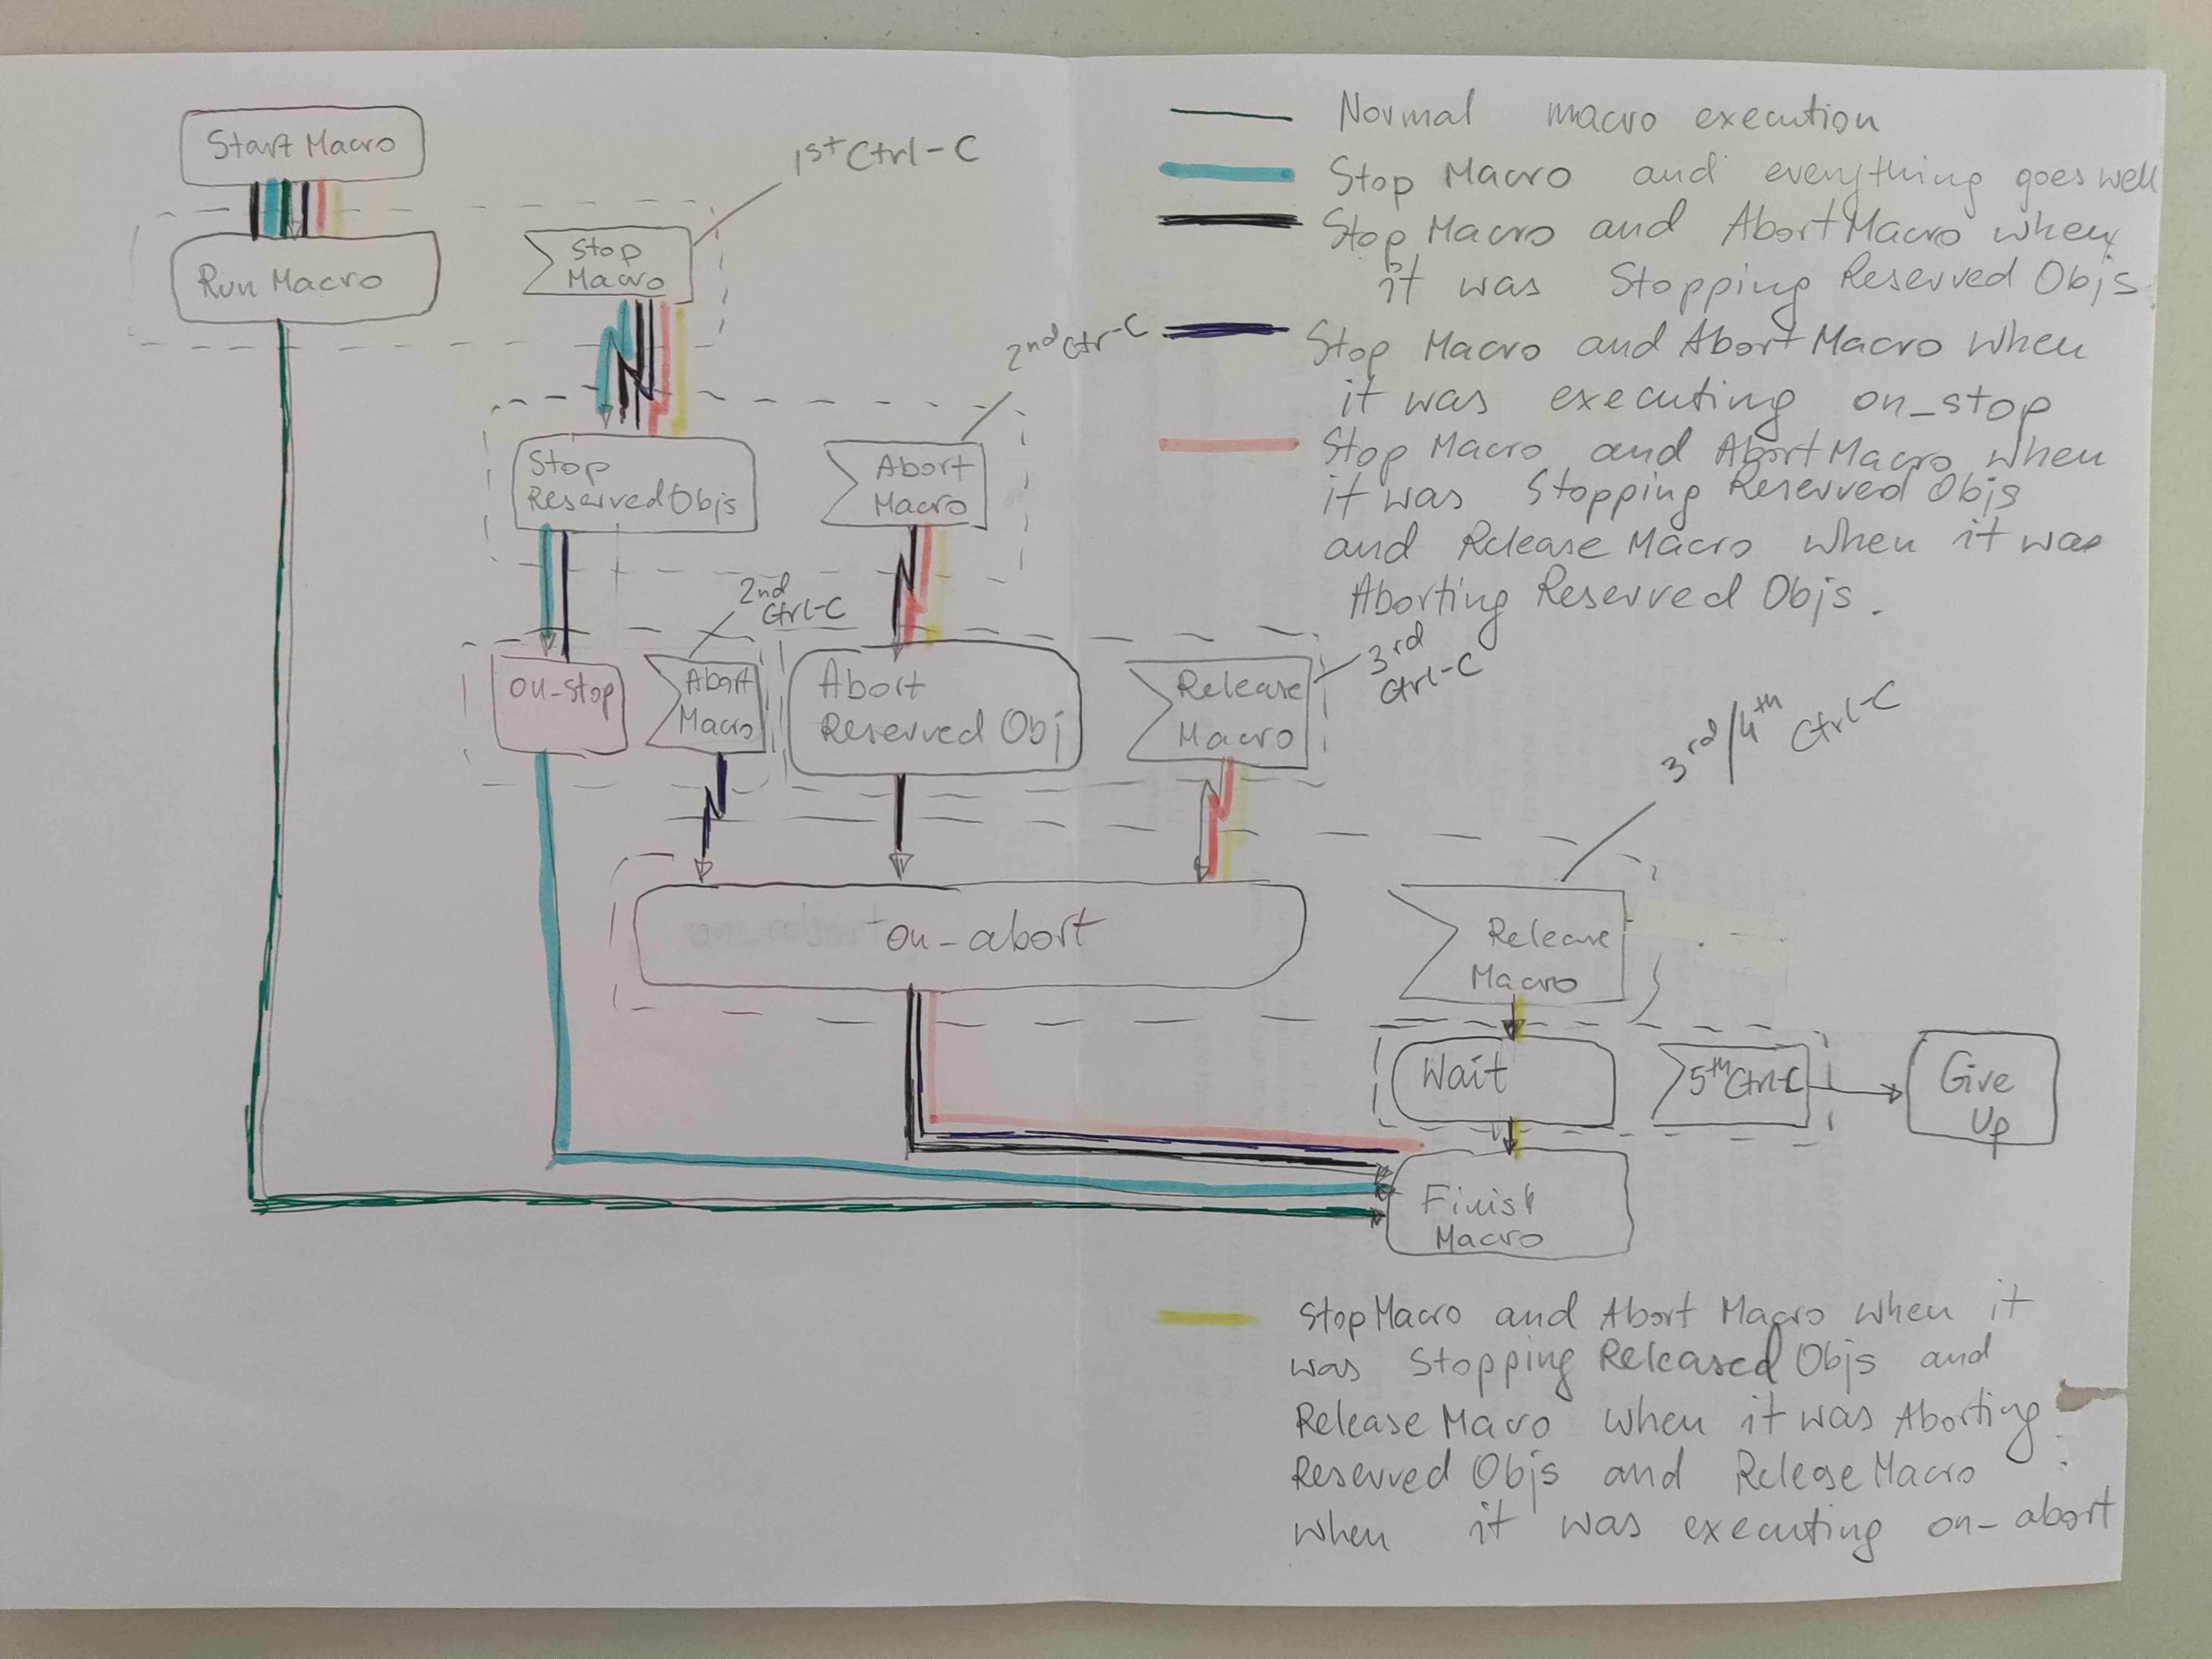 Start Macro
Run Macro
Stop
Macro
1st Ctrl-C
2nd Ctr-C
Stop
Reserved Objs
Abort
Macro
2nd
Ctrl-C
on-stop
Abort
Macro
Abort
Reserved Obj
Release
Macro
3rd
Ctrl-C
3rd/4th Ctrl-C
on-abort
Release
Macro
Wait
5th Ctrl-C
Give
Up
Finish
Macro
Normal macro execution
Stop Macro and everything goes well
Stop Macro and Abort Macro when
it was Stopping Reserved Objs
Stop Macro and Abort Macro when
it was executing on_stop
Stop Macro and Abort Macro when
it was Stopping Reserved Objs
and Release Macro when it was
Aborting Reserved Objs.
Stop Macro and Abort Macro when it
was Stopping Released Objs and
Release Macro when it was Aborting
Reserved Objs and Release Macro
when it was executing on-abort